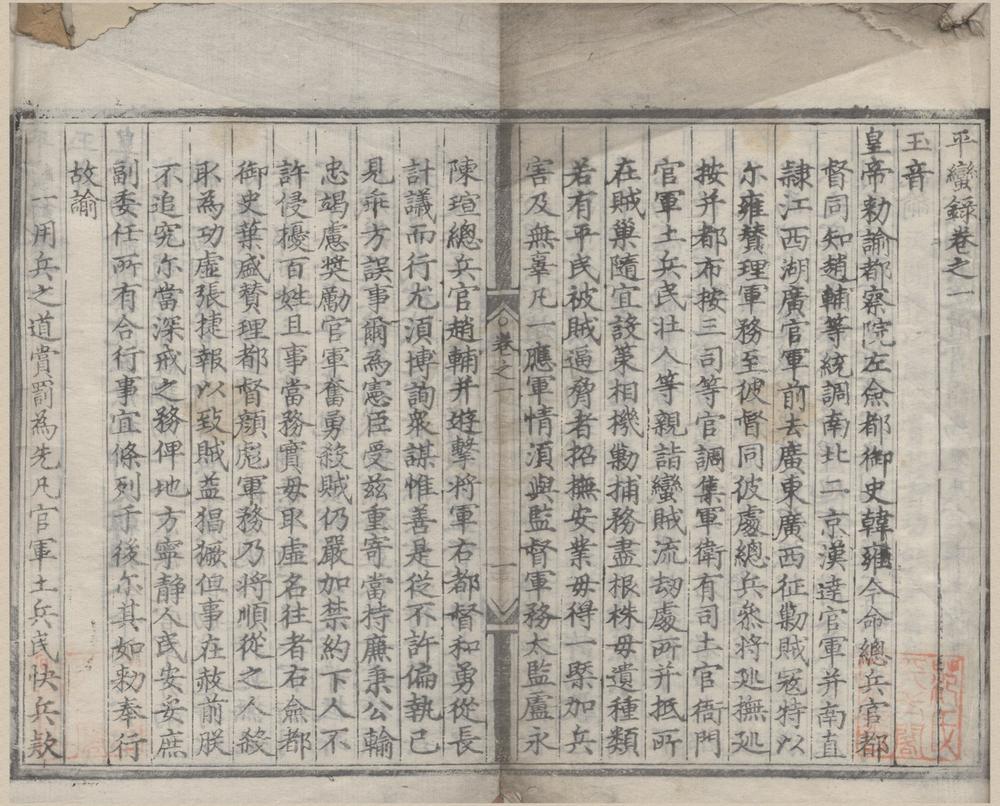 平蠻錄卷之一
玉音
皇帝勅諭都察院左僉都御史韓雍今命總兵官都
督同知趙輔等統調南北二京漢達官軍并南直
隸江西湖廣官軍前去廣東廣西征勦賊冦特以
尔雍賛理軍務至彼督同彼處總兵叅將廵撫廵
按并都布按三司等官調集軍衛有司土官衙門
官軍土兵民壯人等親詣蠻賊流刼處所并抵所
在賊巢隨宜設策相機勦捕務盡根株毋遺種類
若有平民被賊逼脅者招撫安業毋得一槩加兵
害及無辜凡一應軍情須與監督軍務太監盧永
卷之一
一
陳瑄總兵官趙輔并遊擊將軍右都督和勇從長
計議而行尤須博詢衆謀惟善是從不許偏執己
見乖方誤事爾為憲臣受兹重寄當持廉秉公輸
忠竭慮奬勵官軍奮勇殺賊仍嚴加禁約下人不
許侵擾百姓且事當務實毋取虛名往者右僉都
御史葉盛賛理都督顔彪軍務乃將順從之人殺
取為功虛張捷報以致賊益猖獗但事在赦前朕
不追究尔當深戒之務俾地方寧静人民安妥庶
副委任所有合行事宜條列于後尔其如勅奉行
故諭
一用兵之道賞罰為先凡官軍土兵民快兵款